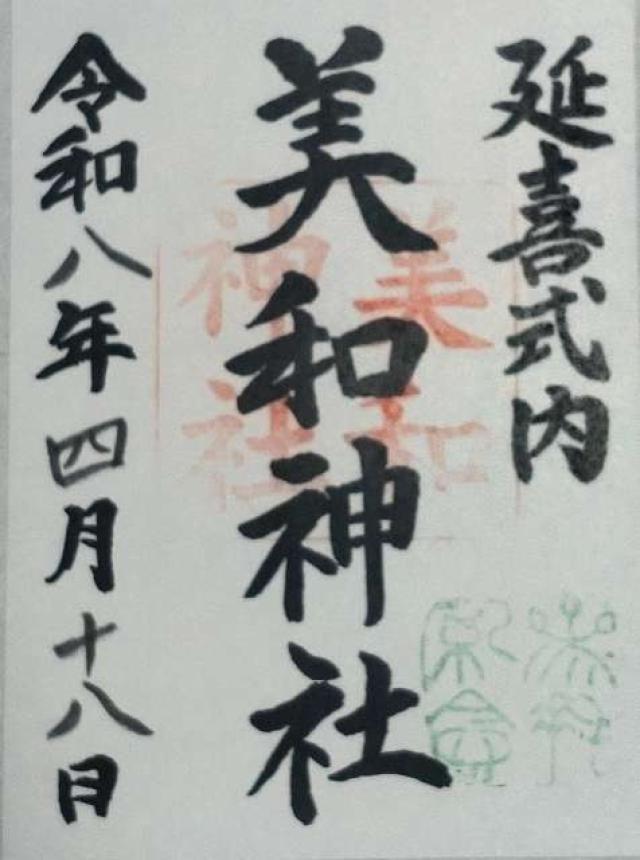 延喜式内
美和神社
美和
神社
令和八年四月十八日